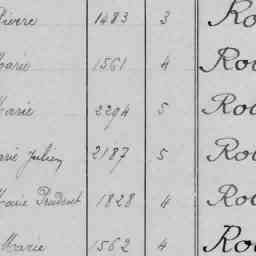 Pierre 1483 3 Ro
Marie 1561 4 Ro
Marie 2294 5 Ro
Marie Julien 2187 5 Ro
Marie Prudent 1828 4 Ro
Marie 1562 4 Ro